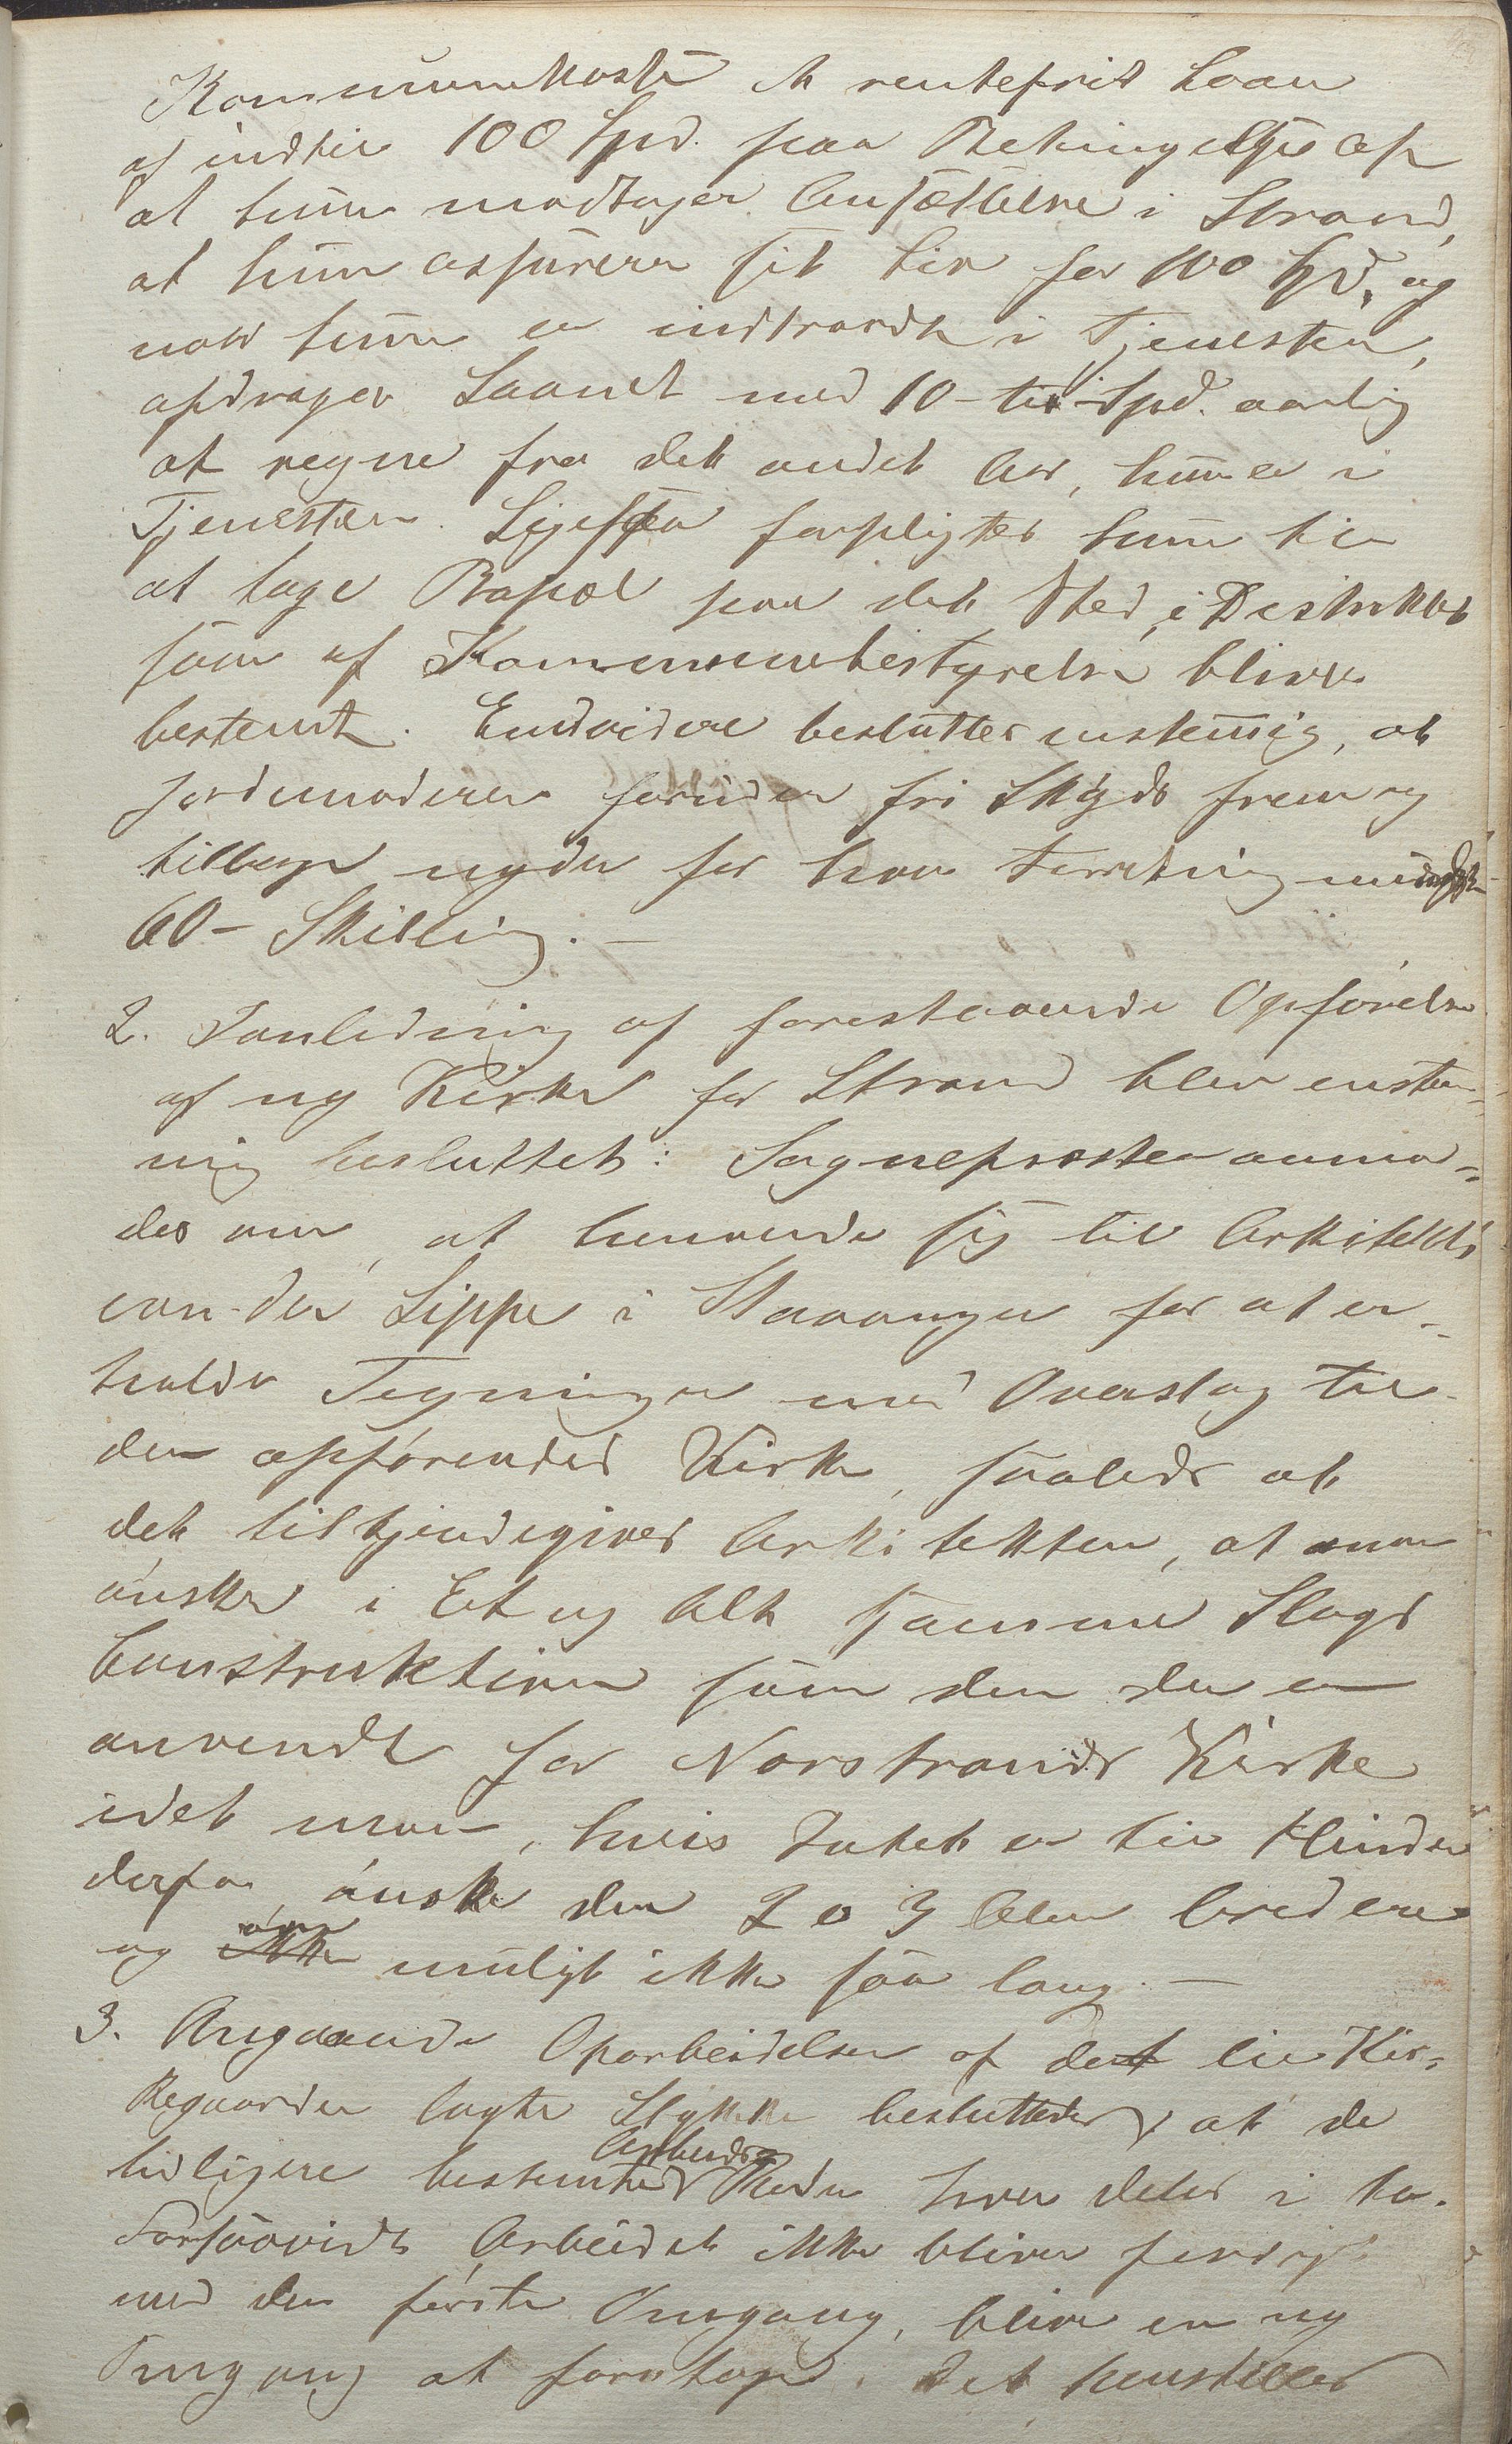 Kommunekassen et rentefrit Laan
af indtil 100 Spd. paa Betingelse af
at hun modtager Ansættelse i Strand,
at hun assurerer sit Liv for 100 Spd. og
naar hun er indtraadt i Tjenesten,
afdrager Laanet med 10 - ti - Spd. aarlig
at regne fra det andet Aar, hun er i
Tjenesten. Ligesaa forpligtes hun til
at tage Bopæl paa det Sted i Distriktet
som af Kommunebestyrelsen bliver
bestemt. Endvidere besluttes enstemig, at
Jordemoderen foruden fri Skyds frem og
tilbage nyder for hver Forretning mindst
60 - Skilling. -
2. I anledning af forestaaende Opførelse
af ny Kirke for Strand blev enstem-
mig besluttet: Sognepresten anmo-
des om, at henvende sig til Arkitekt
von der Lippe i Stavanger for at er-
holde Tegninger med Overslag til
den opførendes Kirke, saaledes at
det tilkjendegives Arkitekten, at man
ønsker i Et og Alt samme Slags
Construktion som den der er
anvendt for Norstrands Kirke
idet man, hvis Intet er til Hinder
derfor ønsker den 2 a 3 Alen bredere
og om muligt ikke saa lang. -
3. Angaaende Oparbeidelsen af det til Kir-
kegaarden lagte Stykke besluttedes, at de
tidligere bestemte Arbeids Roder hver deles i to.
Forsaavidt Arbeidet ikke bliver færdigt
med den første Omgang, bliver en ny
Omgang at foretage. Det henstilles